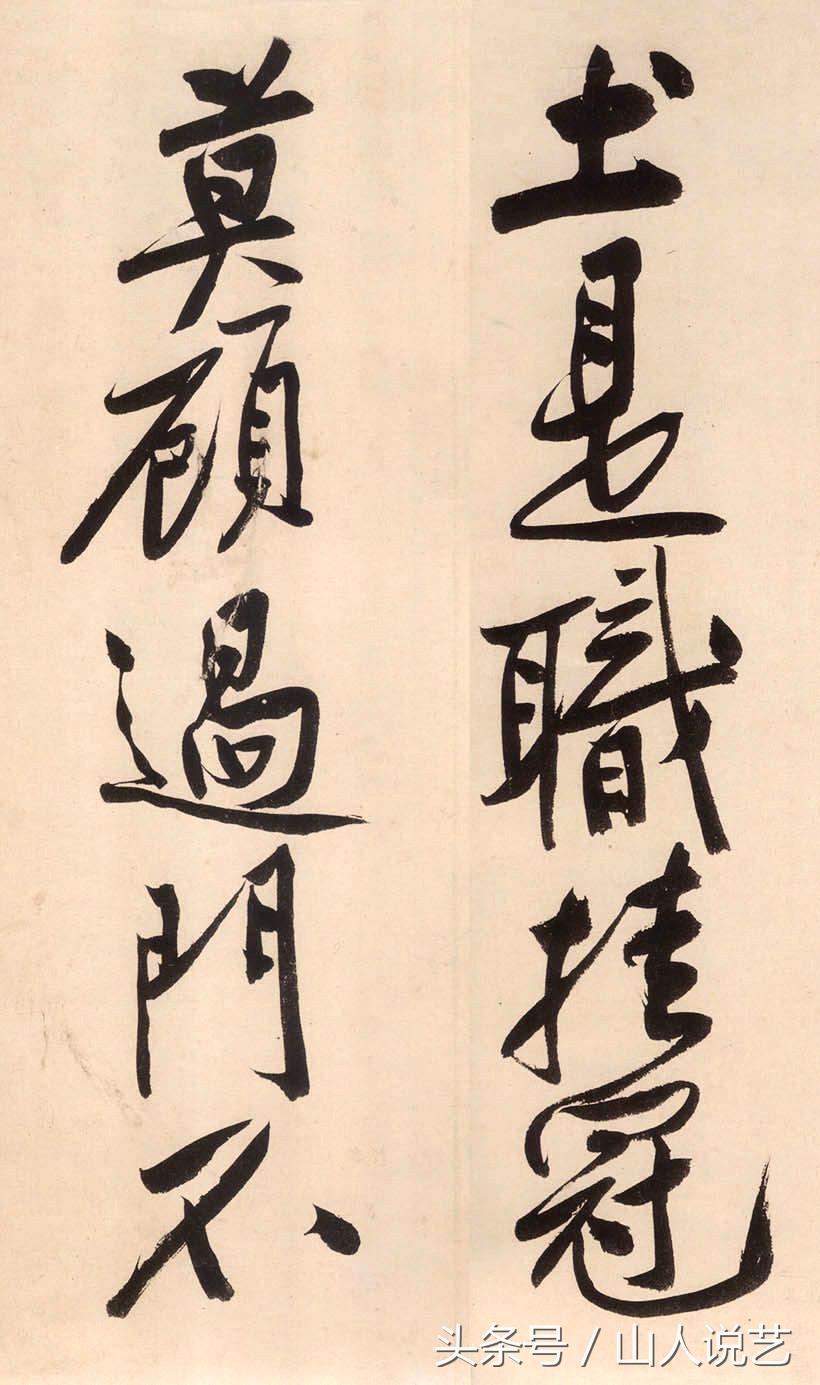 土是職挂冠
莫顧過門不
头条号 / 山人说艺